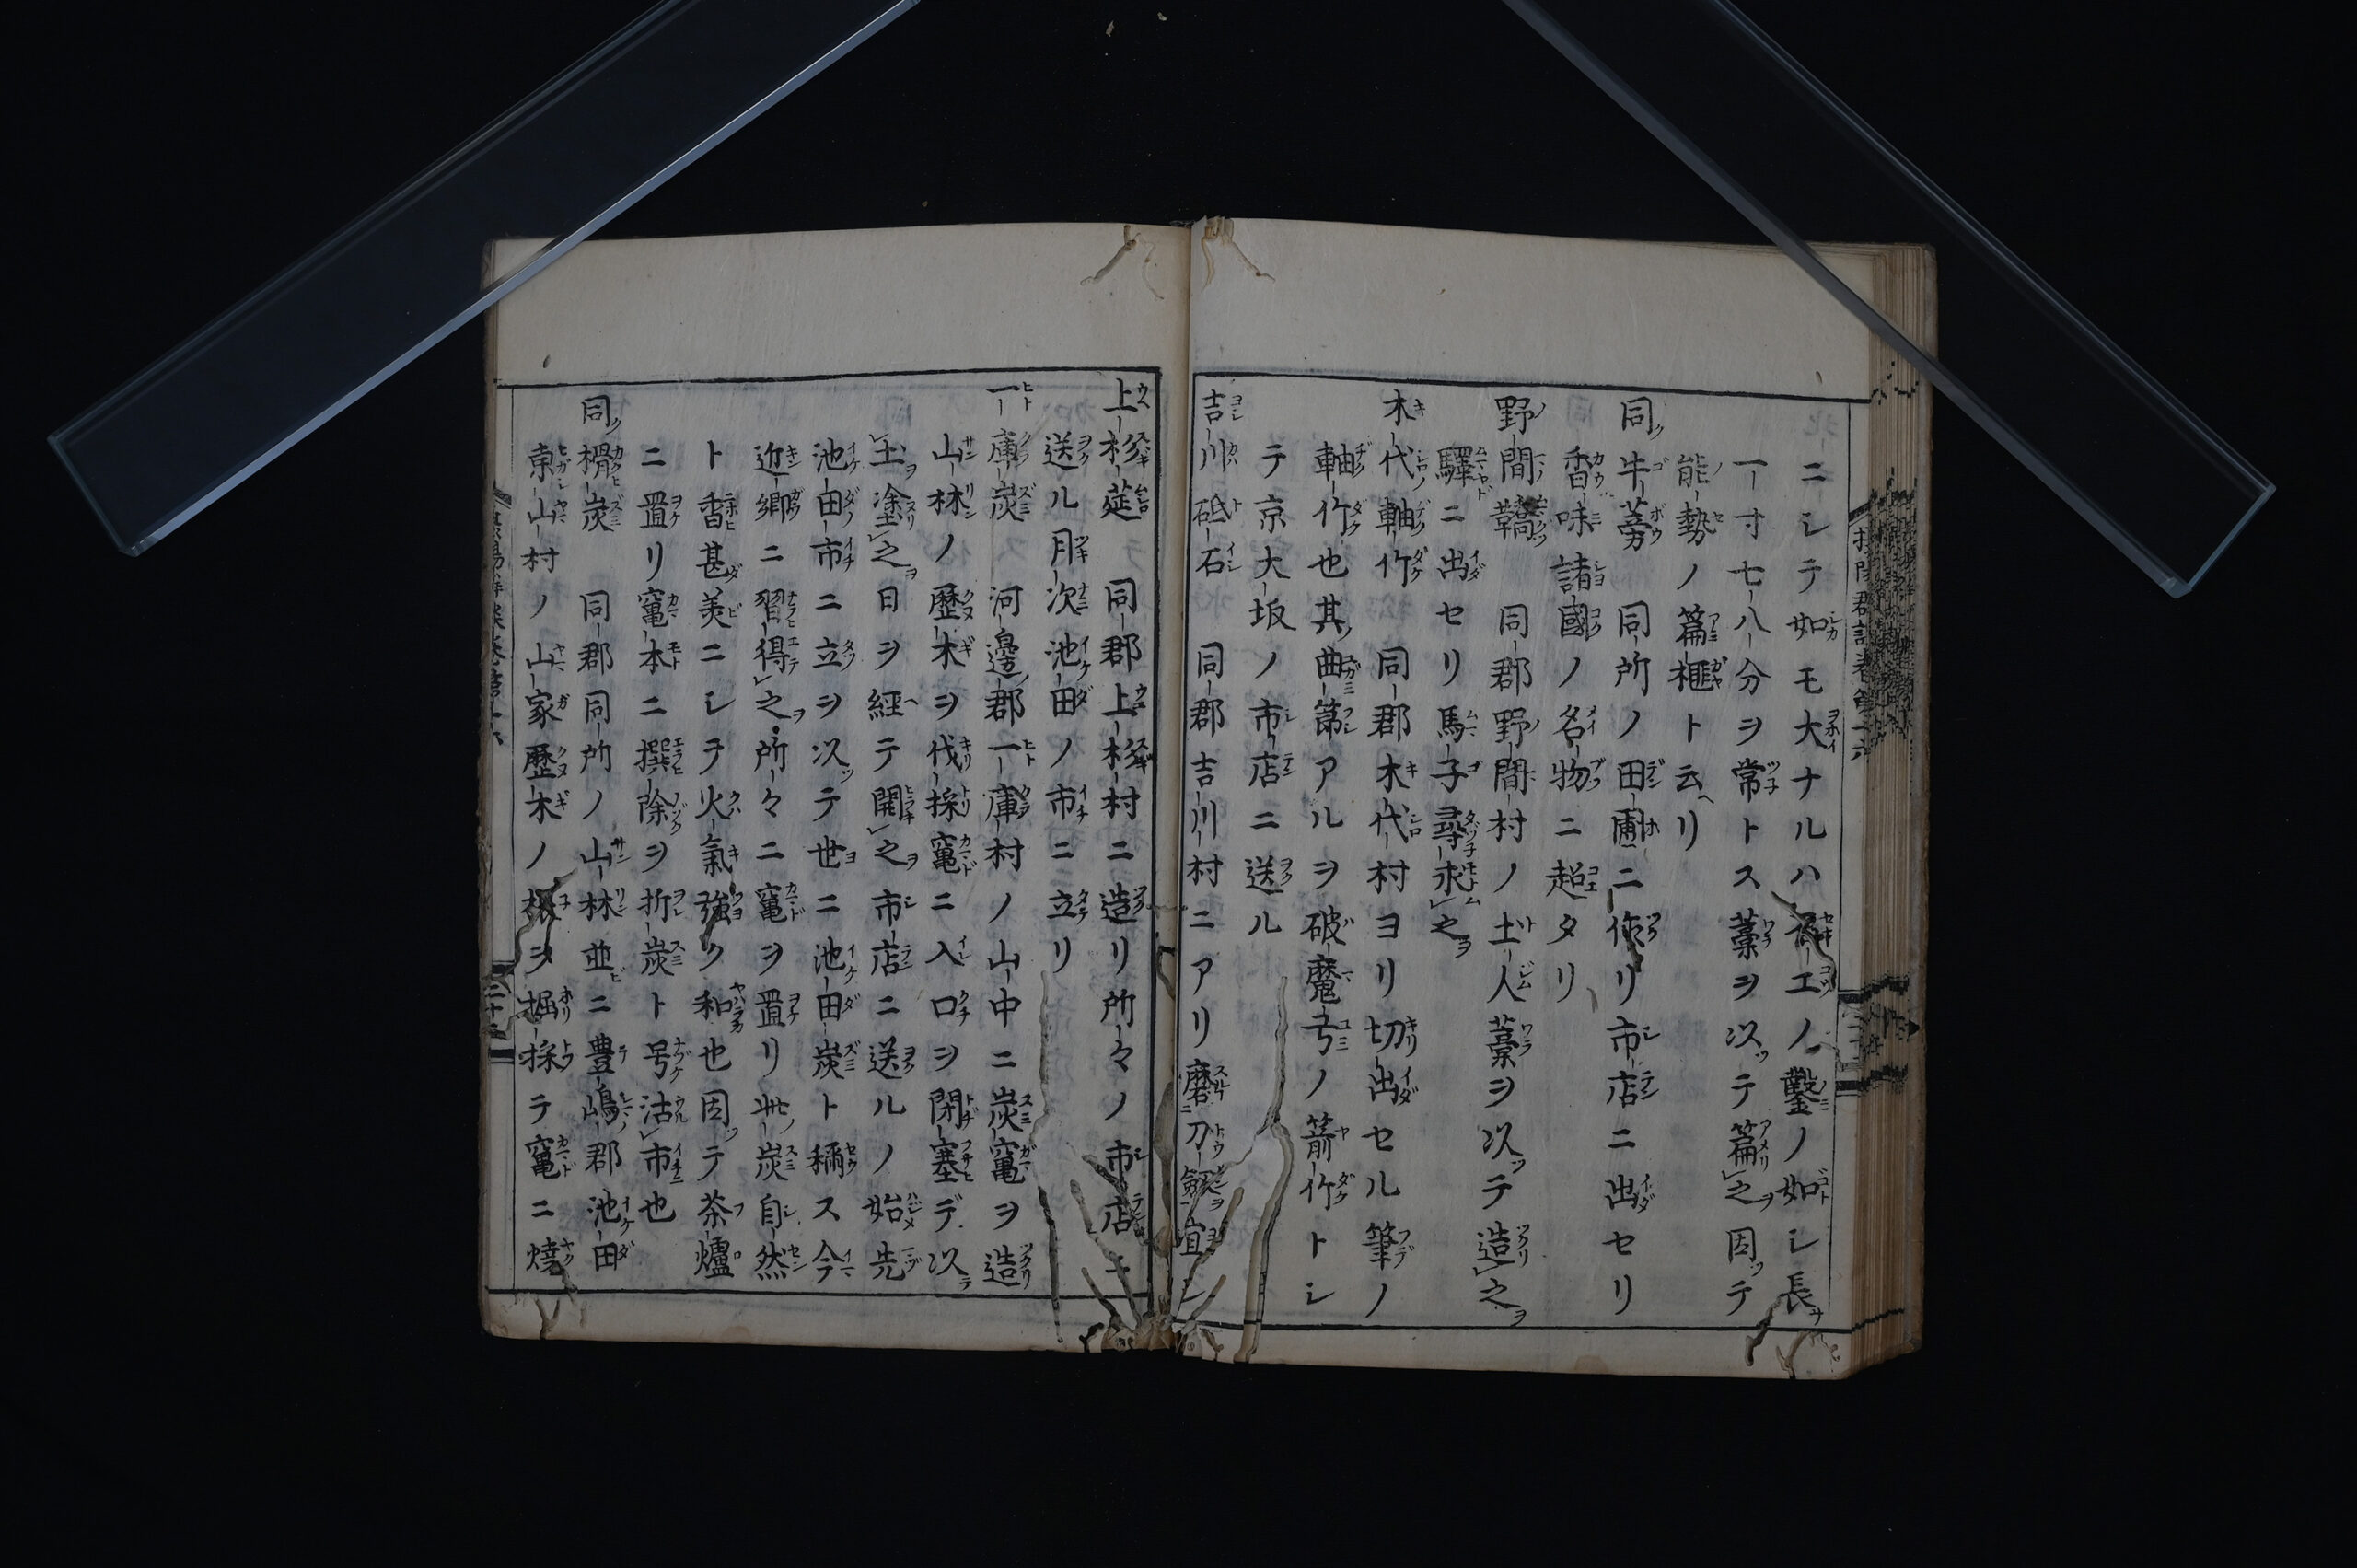 ニシテ如モ大ナルハ石工ノ鑿ノ如シ長
一寸七八分ヲ常トス藁ヲ以テ篇之因テ
能勢ノ篇榧ト云リ
同牛蒡 同所ノ田圃ニ作リ市店ニ出セリ
香味諸國ノ名物ニ超タリ
野間鞽 同郡野間村ノ土人藁ヲ以テ造之
驛ニ出セリ馬子尋求之
木代軸竹 同郡木代村ヨリ切出セル筆ノ
軸竹也其曲節アルヲ破魔弓ノ箭竹トシ
テ京大坂ノ市店ニ送ル
吉川砥石 同郡吉川村ニアリ磨刀劔宜シ
上杉莚 同郡上杉村ニ造リ所々ノ市店ニ
送ル月次池田ノ市ニ立リ
一庫炭 河邊郡一庫村ノ山中ニ炭竃ヲ造
山林ノ歴木ヲ伐採竃ニ入口ヲ閉塞デ以
土塗之日ヲ經テ開之市店ニ送ルノ始先
池田市ニ立ヲ以テ世ニ池田炭ト稱ス今
近郷ニ習得之所々ニ竃ヲ置リ此炭自然
ト香甚美ニシテ火氣強ク和也因テ茶爐
ニ置リ竃本ニ撰除ヲ折炭ト号沽市也
同榾炭 同郡同所ノ山林並ニ豊嶋郡池田
東山村ノ山家歴木ノ根ヲ掘採テ竃ニ焼